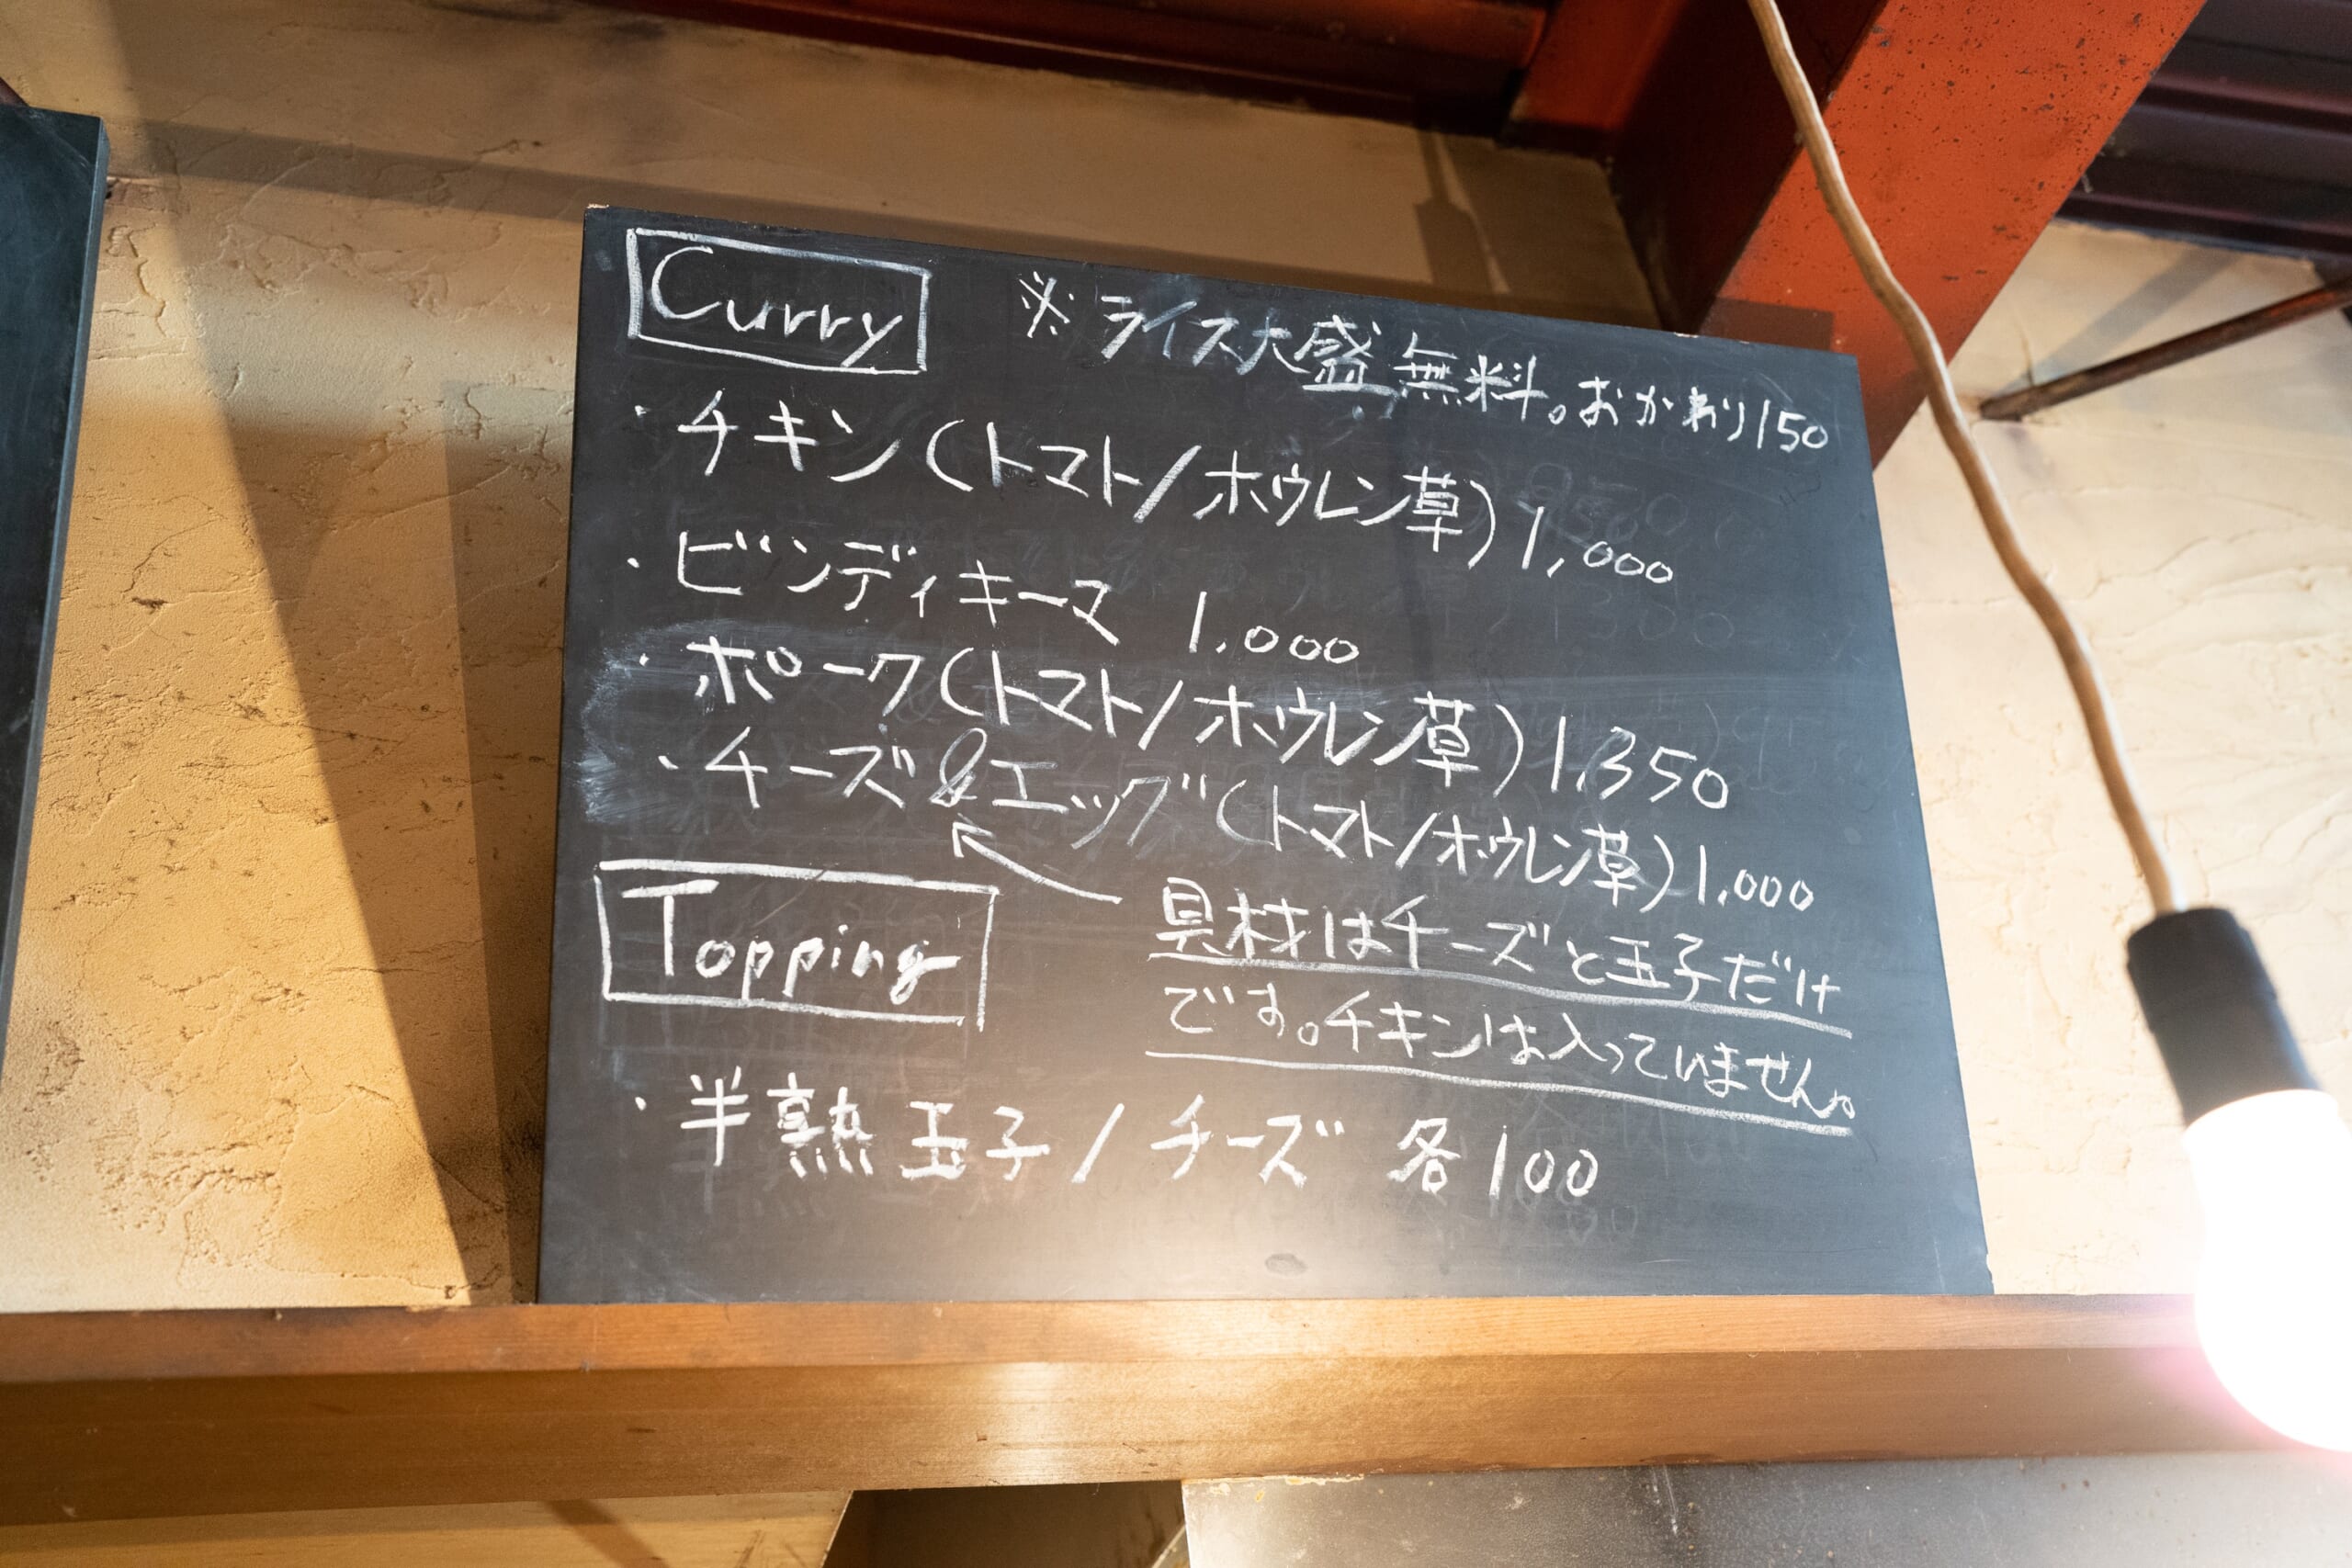 Curry
※ライス大盛無料。おかわり150
・チキン(トマト/ホウレン草)1,000
・ビンディキーマ 1,000
・ポーク(トマト/ホウレン草)1,350
・チーズ&エッグ(トマト/ホウレン草)1,000
具材はチーズと玉子だけ
です。チキンは入っていません。
Topping
・半熟玉子/チーズ 各100